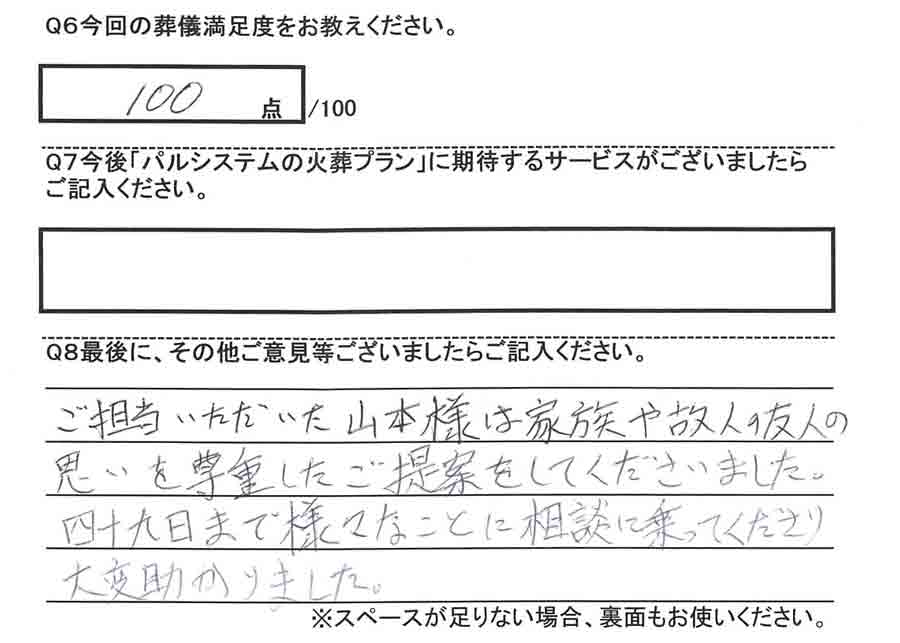 Q6今回の葬儀満足度をお教えください。
100 点 /100
Q7今後「パルシステムの火葬プラン」に期待するサービスがございましたら
ご記入ください。
Q8最後に、その他ご意見等ございましたらご記入ください。
ご担当いただいた山本様は家族や故人の友人の
思いを尊重したご提案をしてくださいました。
四十九日まで様々なことに相談に乗ってくださり
大変助かりました。
※スペースが足りない場合、裏面もお使いください。